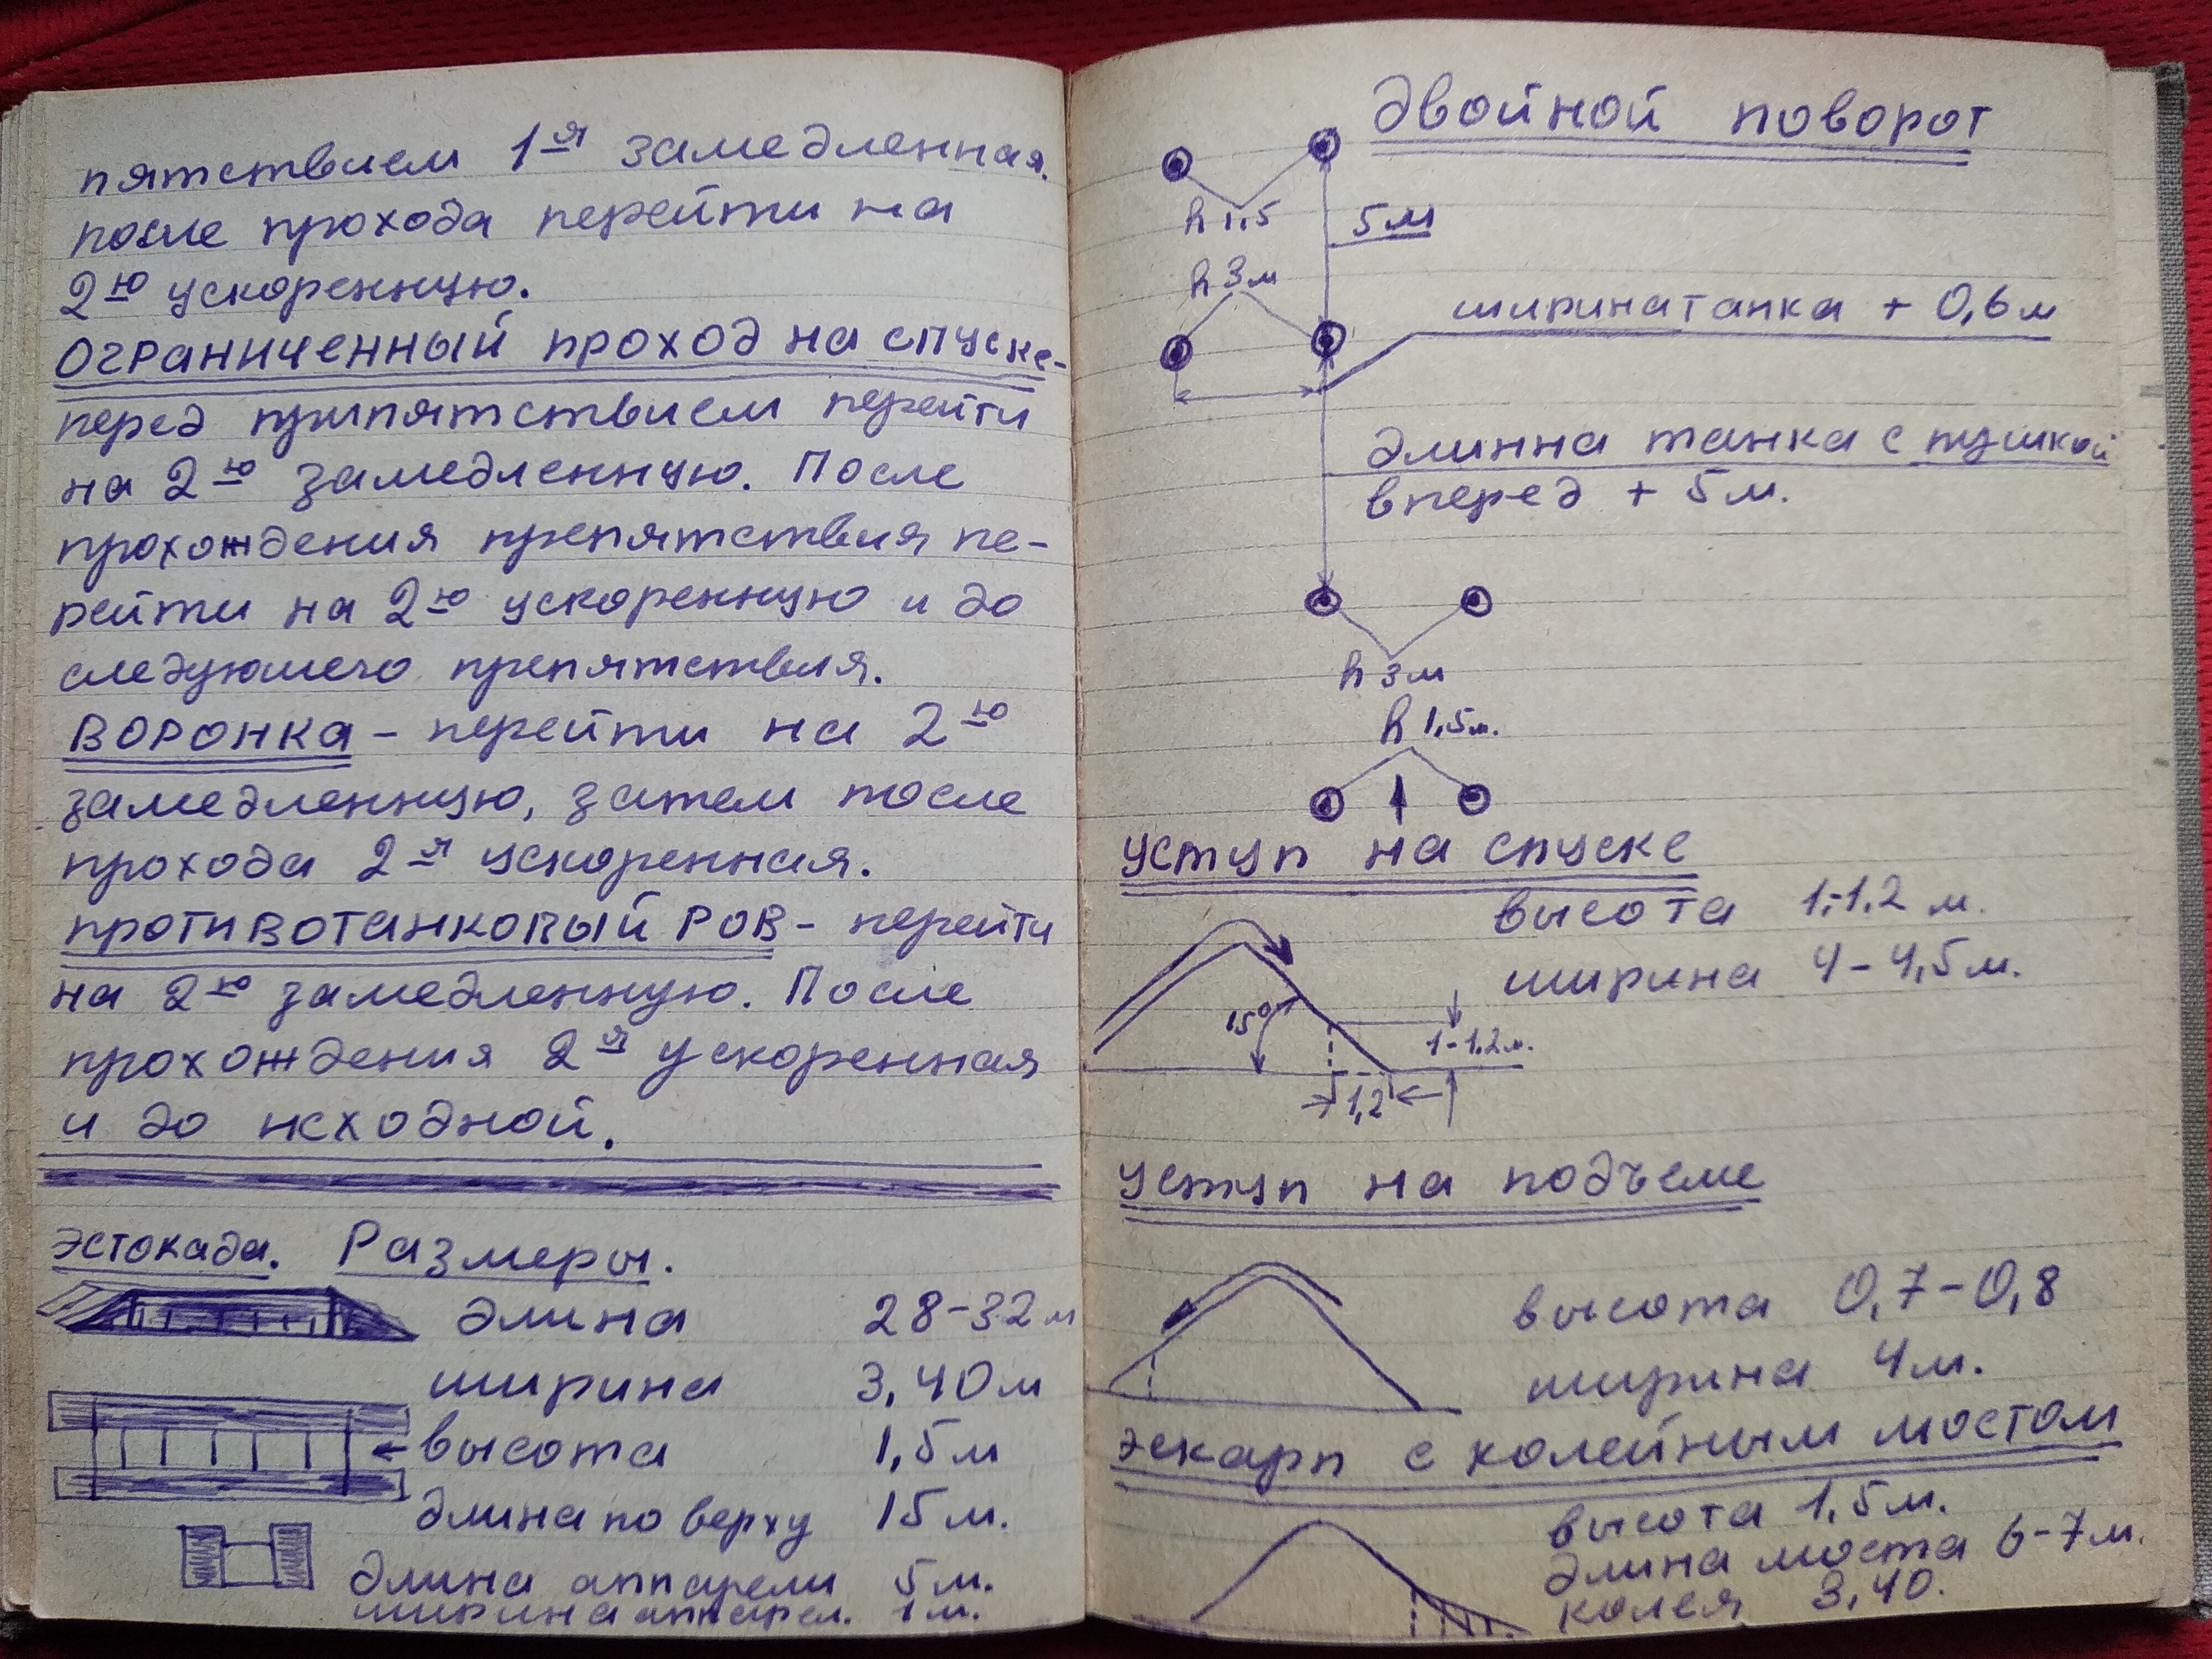 пятствием 1-я замедленная.
после прохода перейти на
2-ю ускоренную.
ОГРАНИЧЕННЫЙ ПРОХОД НА СПУСКЕ-
перед припятствием перейти
на 2-ю замедленную. После
прохождения препятствия пе-
рейти на 2-ю ускоренную и до
следуюшего препятствия.
ВОРОНКА - перейти на 2-ю
замедленную, затем после
прохода 2-я ускоренная.
ПРОТИВОТАНКОВЫЙ РОВ - перейти
на 2-ю замедленную. После
прохождения 2-я ускоренная
и до исходной.
эстокада. Размеры.
длина 28-32 м
ширина 3,40 м
высота 1,5 м
длина по верху 15 м.
длина аппарели 5 м.
ширина аппарел. 1 м.
Двойной поворот
h 1,5
5 м
h 3 м
ширина танка + 0,6 м
длинна танка с пушкой
вперед + 5 м.
h 3 м
h 1,5 м.
уступ на спуске
высота 1,-1,2 м.
ширина 4-4,5 м.
15°
1-1,2 м.
1,2
уступ на подъеме
высота 0,7-0,8
ширина 4 м.
эскарп с колейным мостом
высота 1,5 м.
длина моста 6-7 м.
колея 3,40.